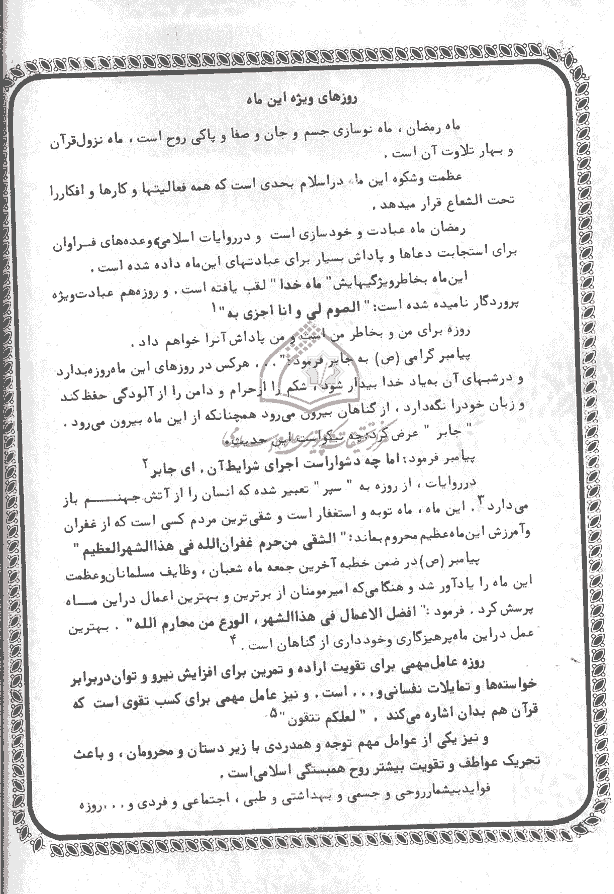 روزهای ویژه این ماه
ماه رمضان ، ماه نوسازی جسم و جان و صفا و پاکی روح است ، ماه نزول قرآن
و بهار تلاوت آن است .
عظمت وشکوه این ماه دراسلام بحدی است که همه فعالیتها و کارها و افکاررا
تحت الشعاع قرار میدهد .
رمضان ماه عبادت و خودسازی است و درروایات اسلامی وعده‌های فراوان
برای استجابت دعاها و پاداش بسیار برای عبادتهای این‌ماه داده شده است .
این‌ماه بخاطرویژگیهایش " ماه خدا " لقب یافته است . و روزه‌هم عبادت‌ویژه
پروردگار نامیده شده است: " الصوم لی و انا اجزی به " ۱
روزه برای من و بخاطر من است و من پاداش آنرا خواهم داد .
پیامبر گرامی (ص) به جابر فرمود: " . . . هرکس در روزهای این ماه‌روزه‌بدارد
و درشبهای آن به‌یاد خدا بیدار شود ، شکم را ازحرام و دامن را از آلودگی حفظ کند
و زبان خودرا نگهدارد ، از گناهان بیرون می‌رود همچنانکه از این ماه بیرون می‌رود .
" جابر " عرض‌کرد: چه نیکواست این حدیث
پیامبر فرمود: اما چه دشواراست اجرای شرایط آن , ای جابر ۲
درروایات ، از روزه به " سپر " تعبیر شده که انسان را از آتش جهنم باز
می‌دارد ۳ . این ماه ، ماه توبه و استغفار است و شقی‌ترین مردم کسی است که از غفران
وآمرزش این‌ماه‌عظیم محروم بماند: " الشقی من‌حرم غفران‌الله فی هذاالشهرالعظیم "
پیامبر (ص) در ضمن خطبه آخرین جمعه ماه شعبان ، وظایف مسلمانان‌وعظمت
این ماه را یادآور شد و هنگامی‌که امیرمومنان از برترین و بهترین اعمال دراین ماه
پرسش کرد . فرمود : " افضل الاعمال فی هذاالشهر ، الورع من محارم الله " . بهترین
عمل دراین ماه‌پرهیزگاری وخودداری از گناهان است . ۴
روزه عامل‌مهمی برای تقویت اراده و تمرین برای افزایش نیرو و توان‌دربرابر
خواسته‌ها و تمایلات نفسانی‌و . . . است . و نیز عامل مهمی برای کسب تقوی است که
قرآن هم بدان اشاره می‌کند . " لعلکم تتقون " ۵
و نیز یکی از عوامل مهم توجه و همدردی با زیر دستان و محرومان ، و باعث
تحریک عواطف و تقویت بیشتر روح همبستگی اسلامی‌است .
فوایدبیشمارروحی و جسمی و بهداشتی و طبی ، اجتماعی و فردی و . . . روزه